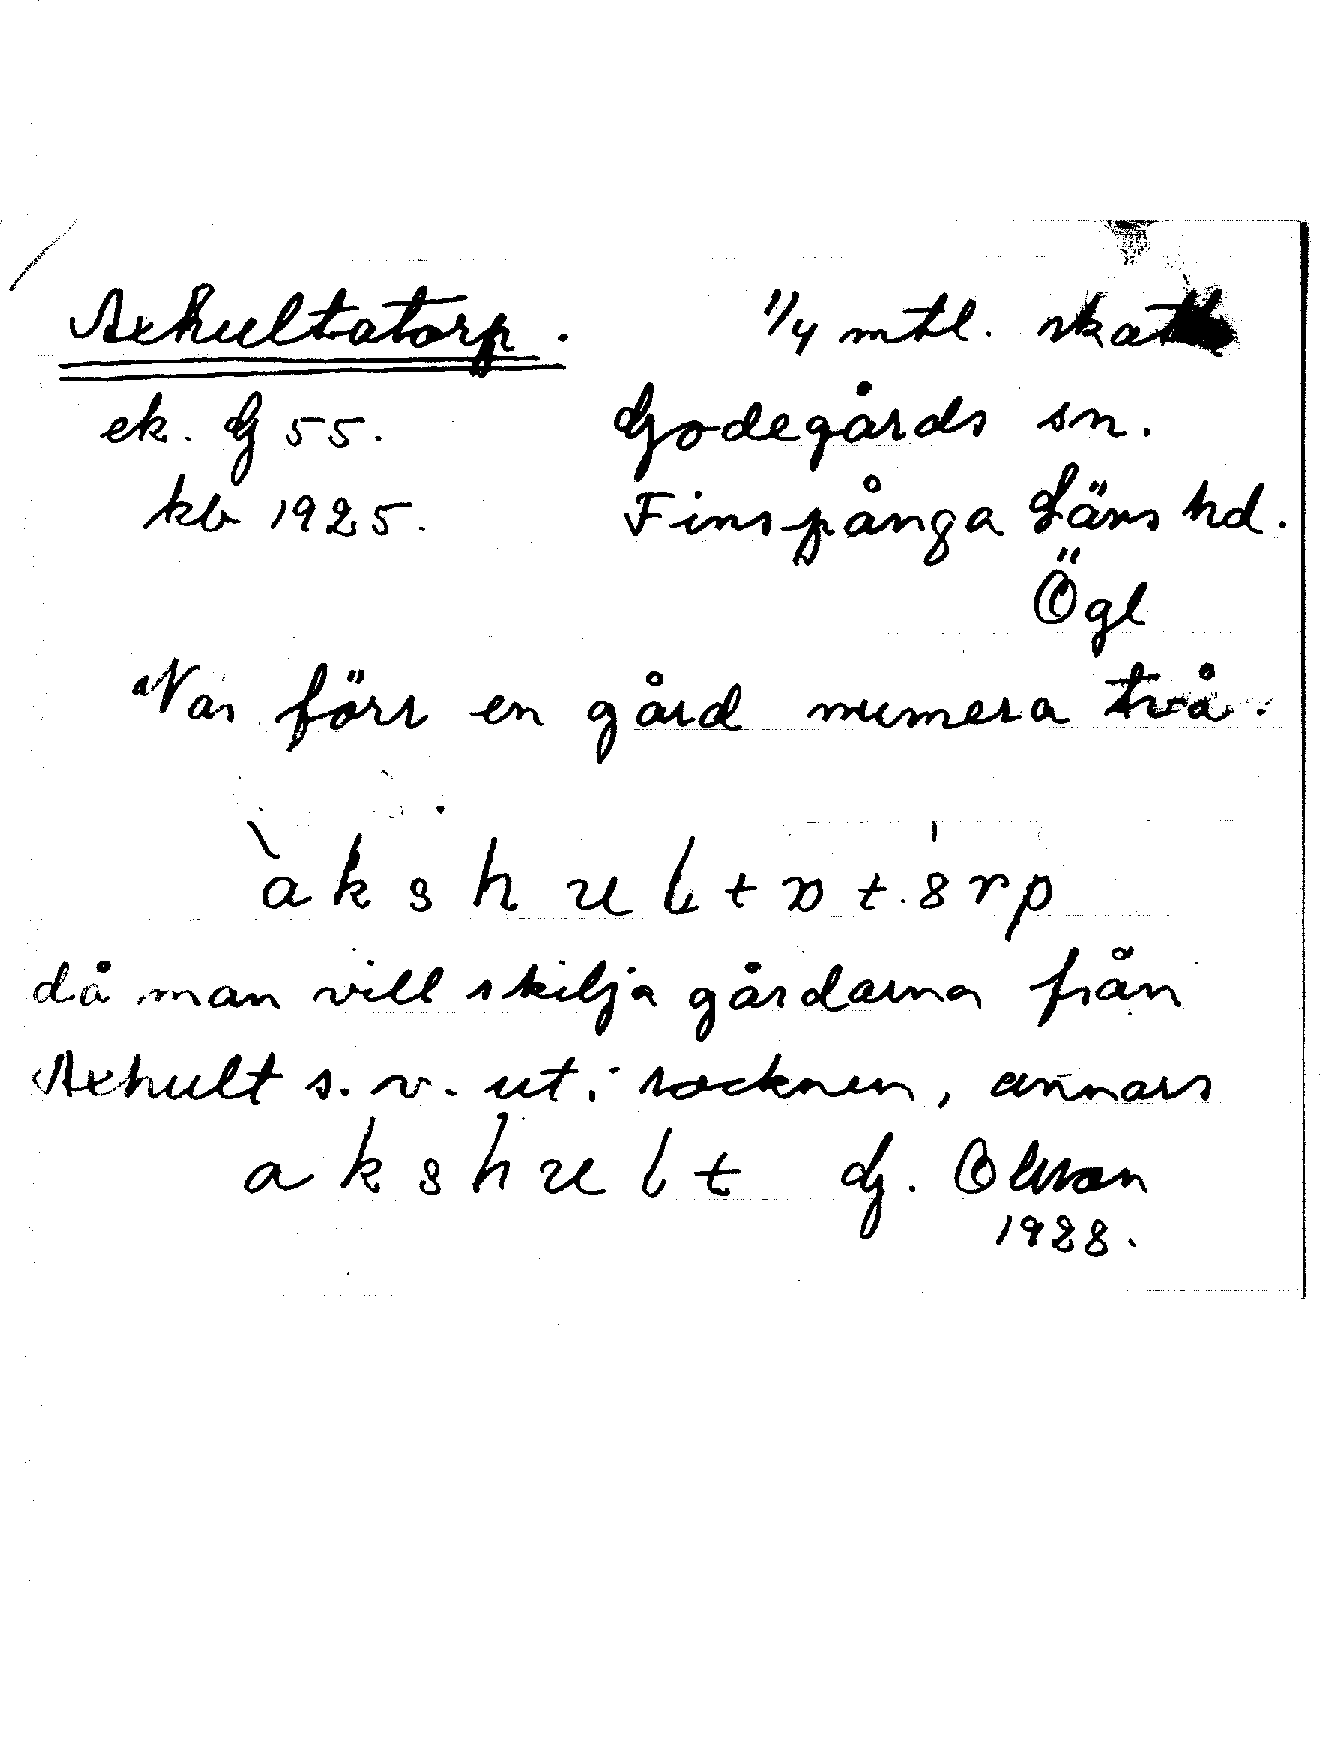 Axhultatorp. 1/4 mtl. skatte
ek. G 55. Godegårds sn.
kb 1925. Finspånga Läns hd.
Ögl
Var förr en gård numera två.
àkshultɒt.8rp
då man vill skilja gårdarna från
Axhult s. v. ut i socknen, annars
akshult G. Olsson
1928.